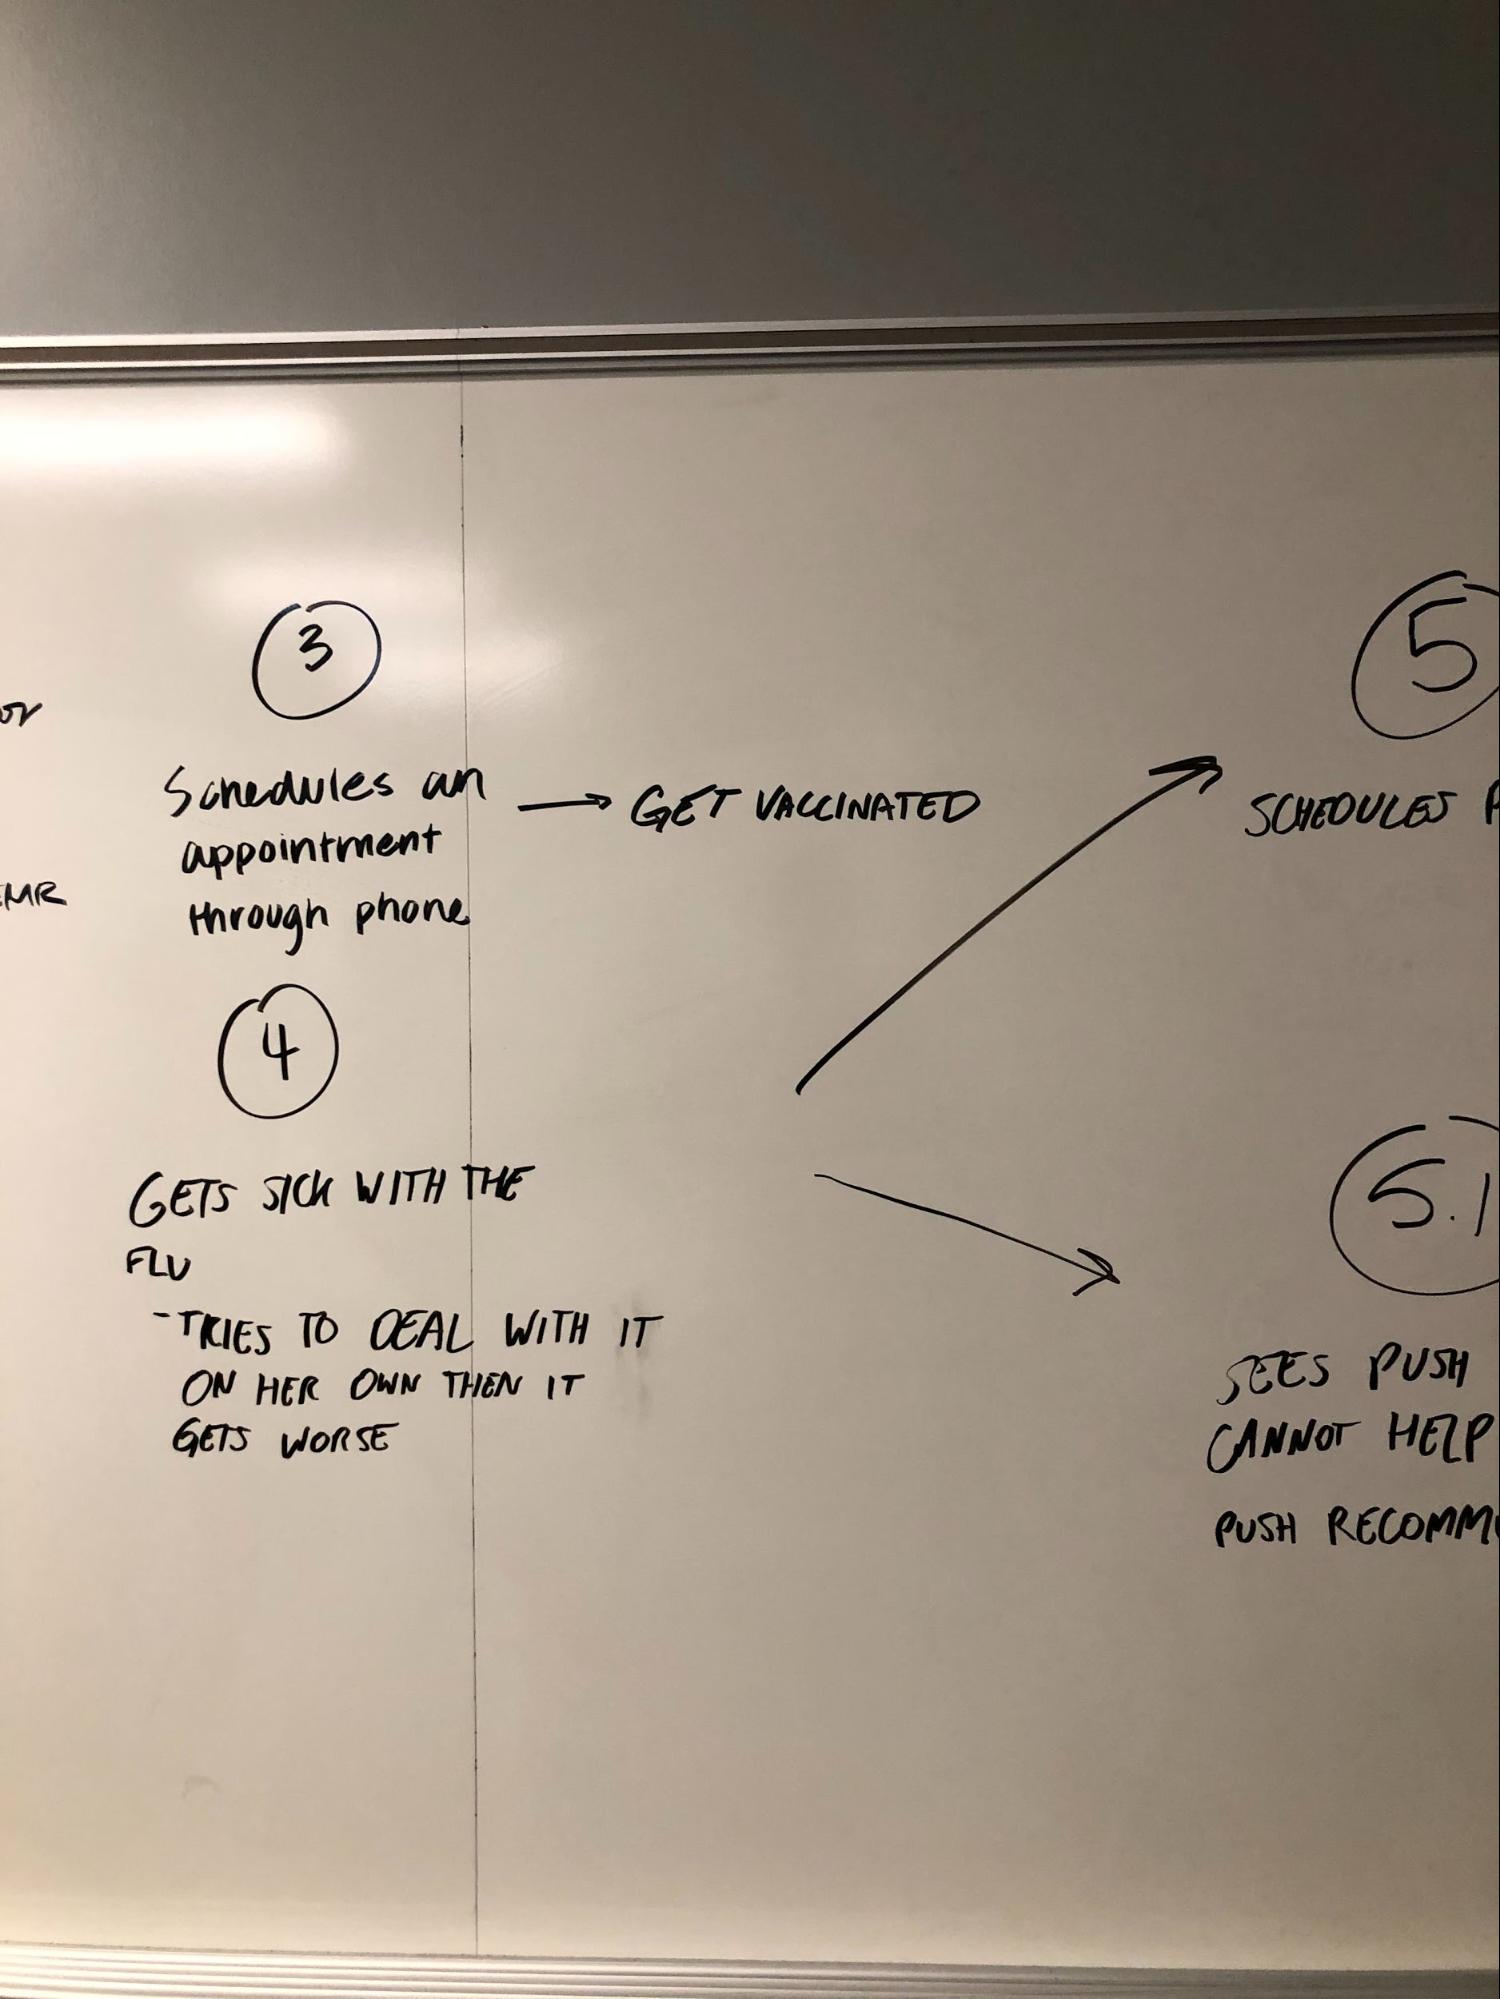 3
Schedules an → GET VACCINATED
appointment
through phone
EMR
4
GETS SICK WITH THE
FLU
- TRIES TO DEAL WITH IT
ON HER OWN THEN IT
GETS WORSE
5
SCHEDULES
5.1
SEES PUSH
CANNOT HELP
PUSH RECOMM